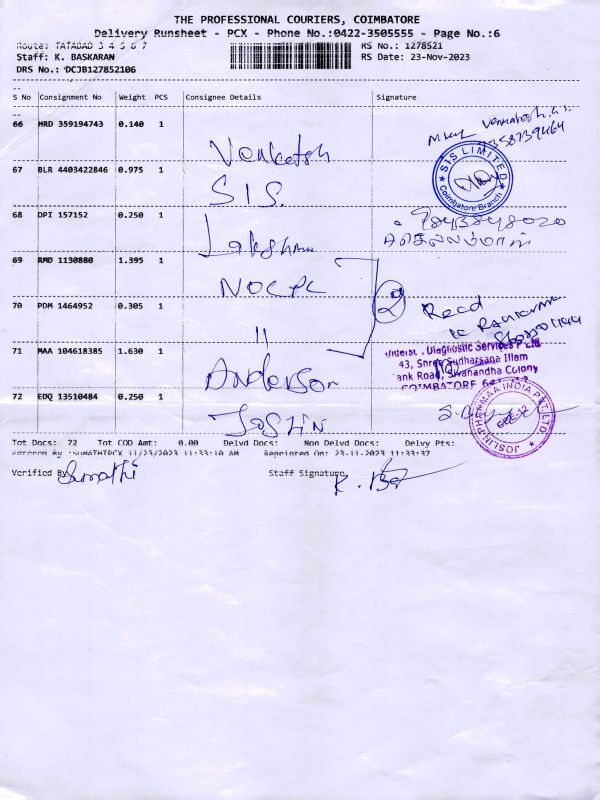 THE PROFESSIONAL COURIERS, COIMBATORE
Delivery Runsheet - PCX - Phone No.:0422-3505555 - Page No.:6
Route: TATABAD 3 4 5 6 7
RS No.: 1278521
Staff: K. BASKARAN
RS Date: 23-Nov-2023
DRS No.: DCJB127852106
S No Consignment No Weight PCS Consignee Details Signature
66 MRD 359194743 0.140 1 Venkatesh
67 BLR 4403422846 0.975 1 SIS.
SIS LIMITED
Coimbatore Branch
68 DPI 157152 0.250 1 Lakshmi
69 RMD 1130880 1.395 1 NOCPC
70 PDM 1464952 0.305 1 11
2 Recd
71 MAA 104618385 1.630 1 Anderson
Diagnostic Services P Ltd
43, Shree Sudharsana Illam
ank Road, Sivanandha Colony
COIMBATORE
72 EDQ 13510484 0.250 1 Joslin
JOSLIN PHARMAA INDIA PVT LTD
Tot Docs: 72 Tot COD Amt: 0.00 Delvd Docs: Non Delvd Docs: Delvy Pts:
Entered By :SUMATHIPCX 11/23/2023 11:33:10 AM Reprinted On: 23-11-2023 11:33:37
Verified By Sumathi Staff Signature